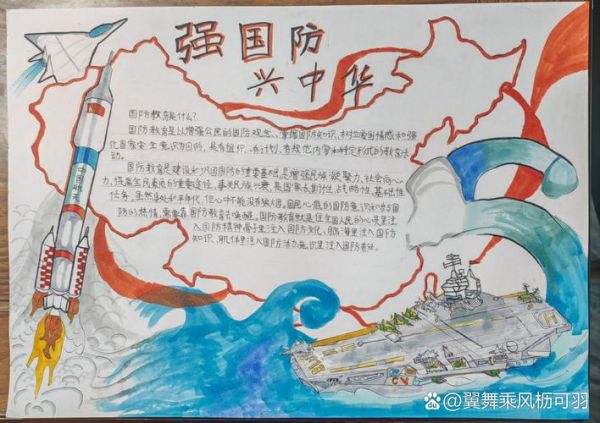 强国防
兴中华
国防教育是什么?
国防教育是以增强公民的国防观念、掌握国防知识、树立爱国情感和强
化国家安全意识为目的,具有组织、有计划,有规范内容和特定形式的教育活
动。
国防教育是建设和巩固国防的重要基础,是增强民族凝聚力、社会向心
力,提高全民素质的重要途径,事关民族兴衰,是国家长期性、战略性、基础性
任务,虽然身处和平年代,但心中不能没有敌人国,国民心底的国防意识和对国
防的热情,需要靠国防教育去唤醒,国防教育就是往全国人民的心灵里注
入国防精神骨子里注入国防文化,脑海里注入国防
知识,肌体里注入国防活力意识里注入国防责任。
中国航天
@翼舞乘风枥可羽